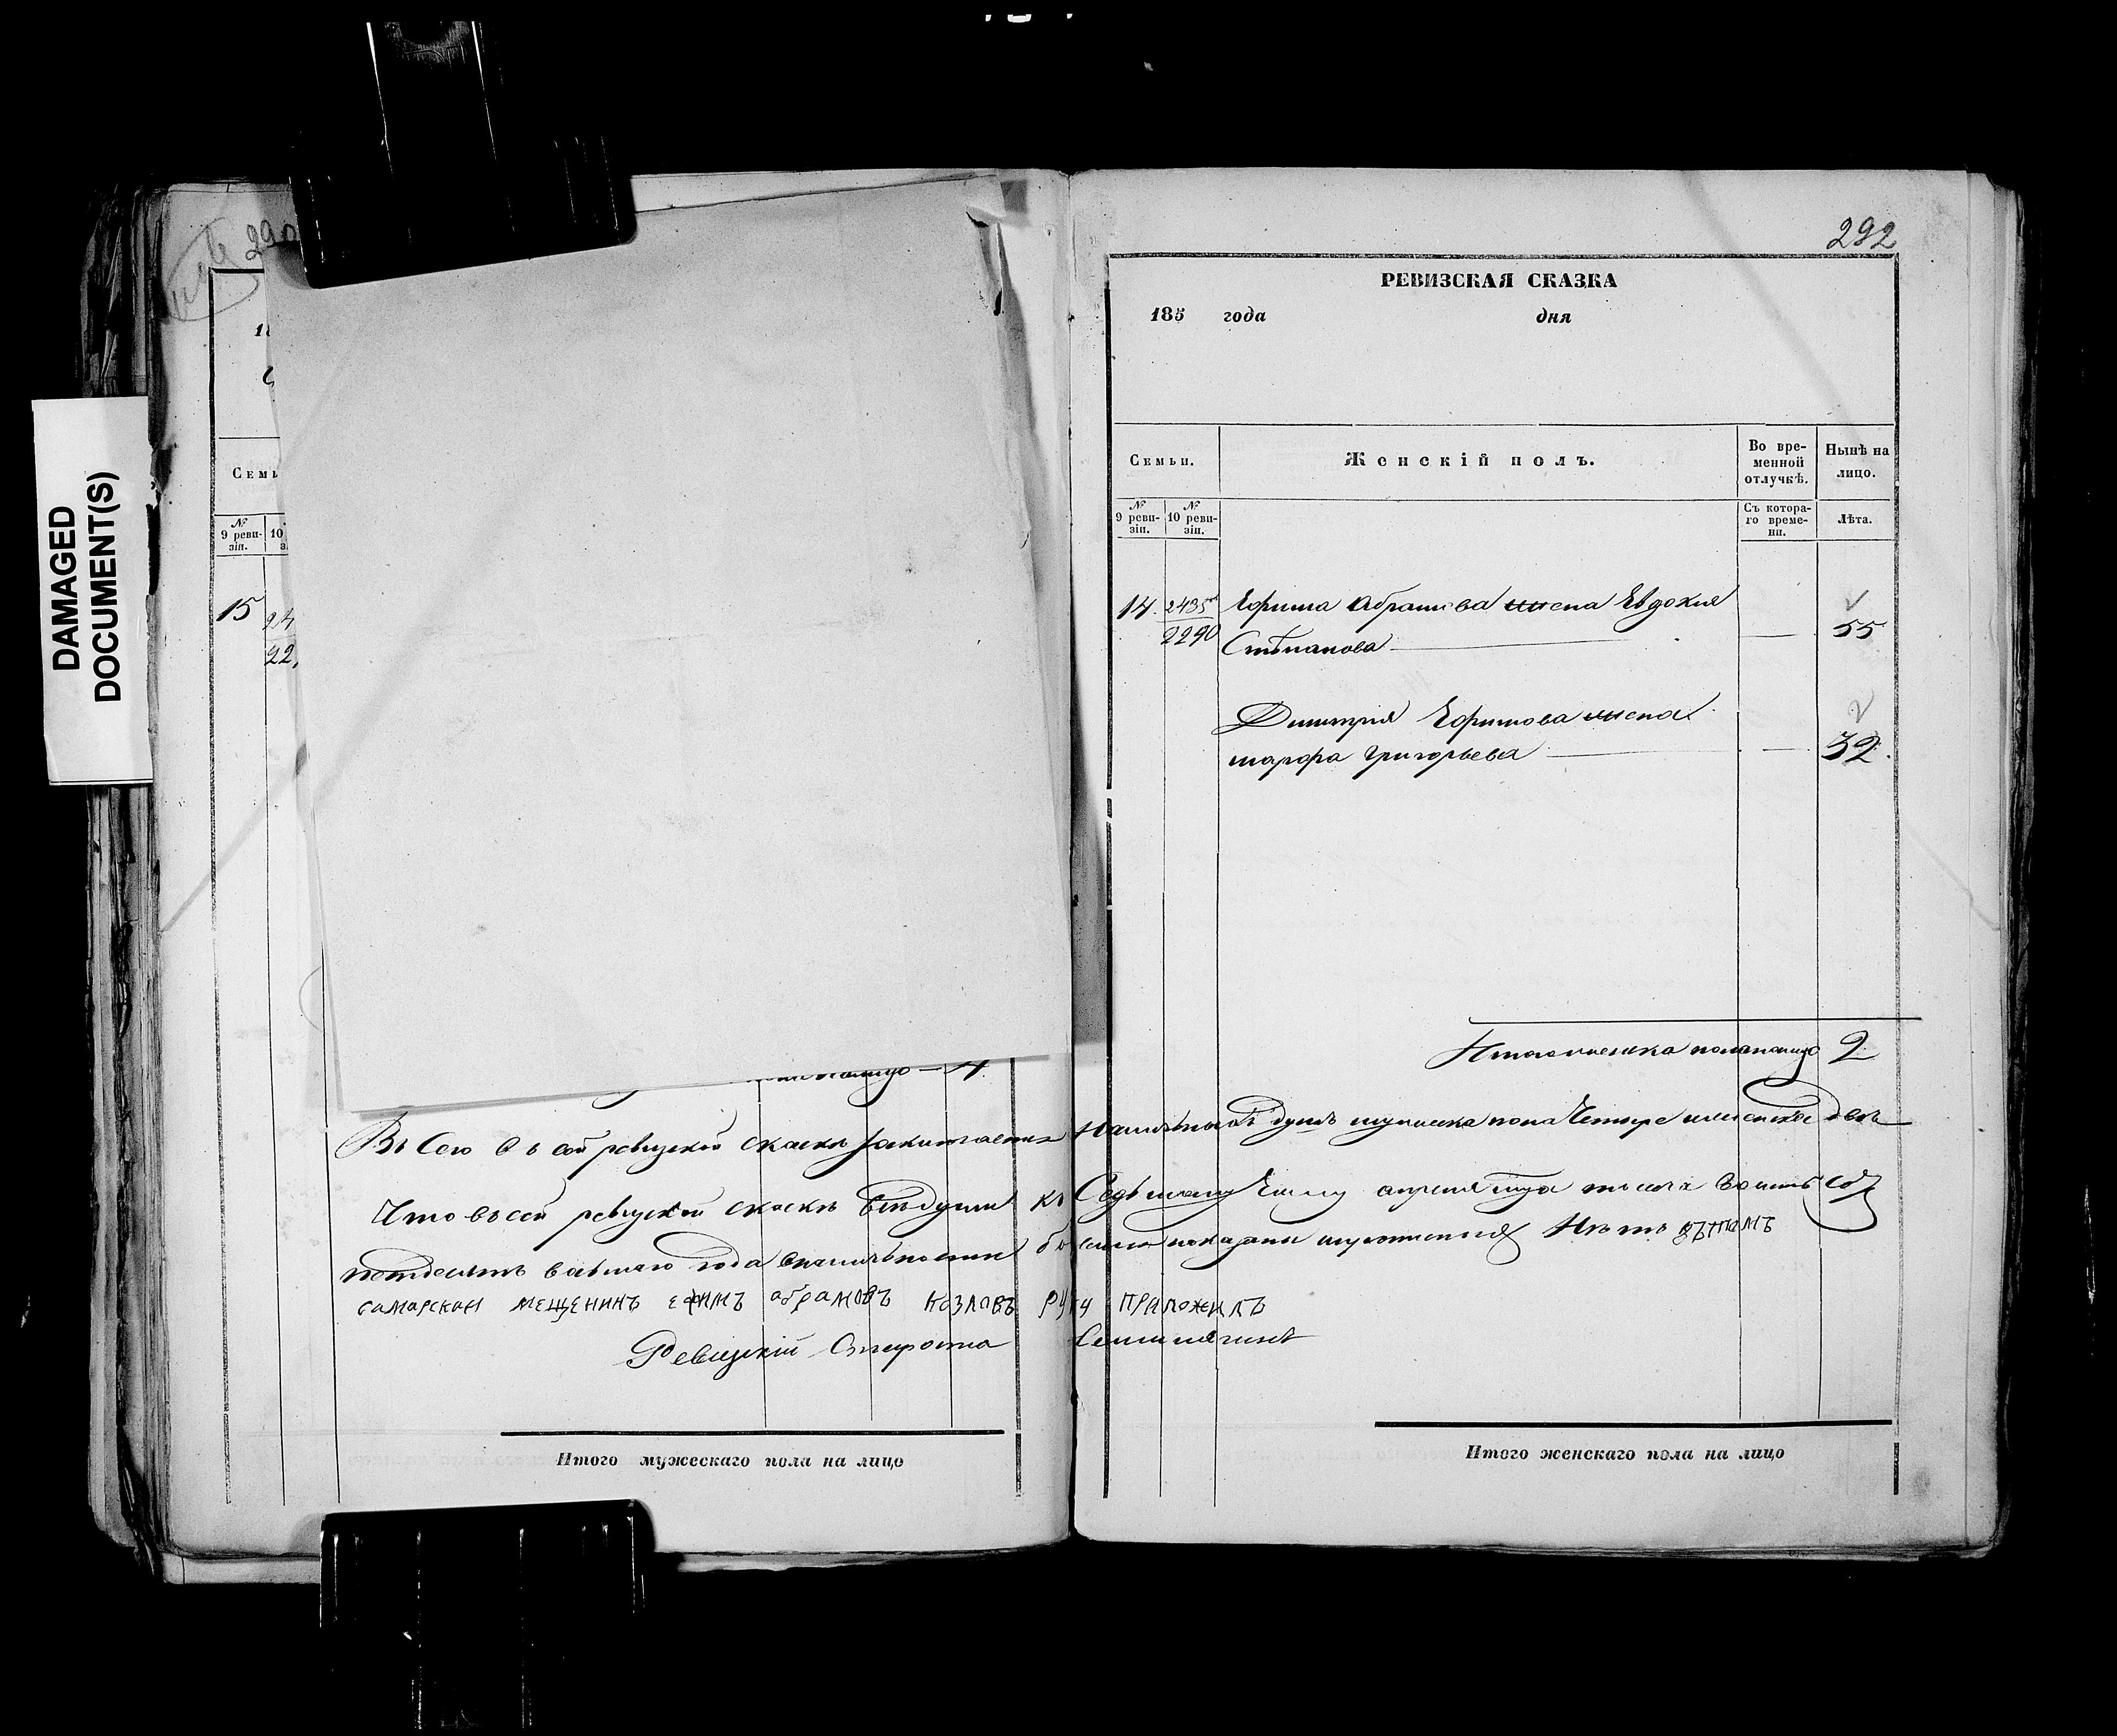 DAMAGED
DOCUMENT(S)
290
Семь
№
9 реви-
зіи.
10
15
24
22
292
РЕВИЗСКАЯ СКАЗКА
185 года дня
Семьи.
Женскій полъ.
Во вре-
менной
отлучкѣ.
Нынѣ на
лицо.
№
9 реви-
зіи.
№
10 реви-
зіи.
Съ котора-
го време-
ни.
Лѣта.
14. 2435 Ефима Абрамова жена Евдокия
2290 Степанова — 55
Димитрия Ефимова жена
марфа григорьева — 32
Итого женска пола налицо 2
Въ Сего въ сей ревизкой скаске заключается Наличныхъ душъ мужеска пола Четыре женска две
Что въ сей ревизкой скаске все души къ Седьмому Числу апреля тысяча восемь сот
петдесятъ восьмаго года вналичьности показаны и утаенныхъ Нетъ вътомъ
самарскаи мещенинъ ефимъ абрамовъ козловъ руку приложилъ
Ревизкій Староста
Итого мужескаго пола на лицо
Итого женскаго пола на лицо